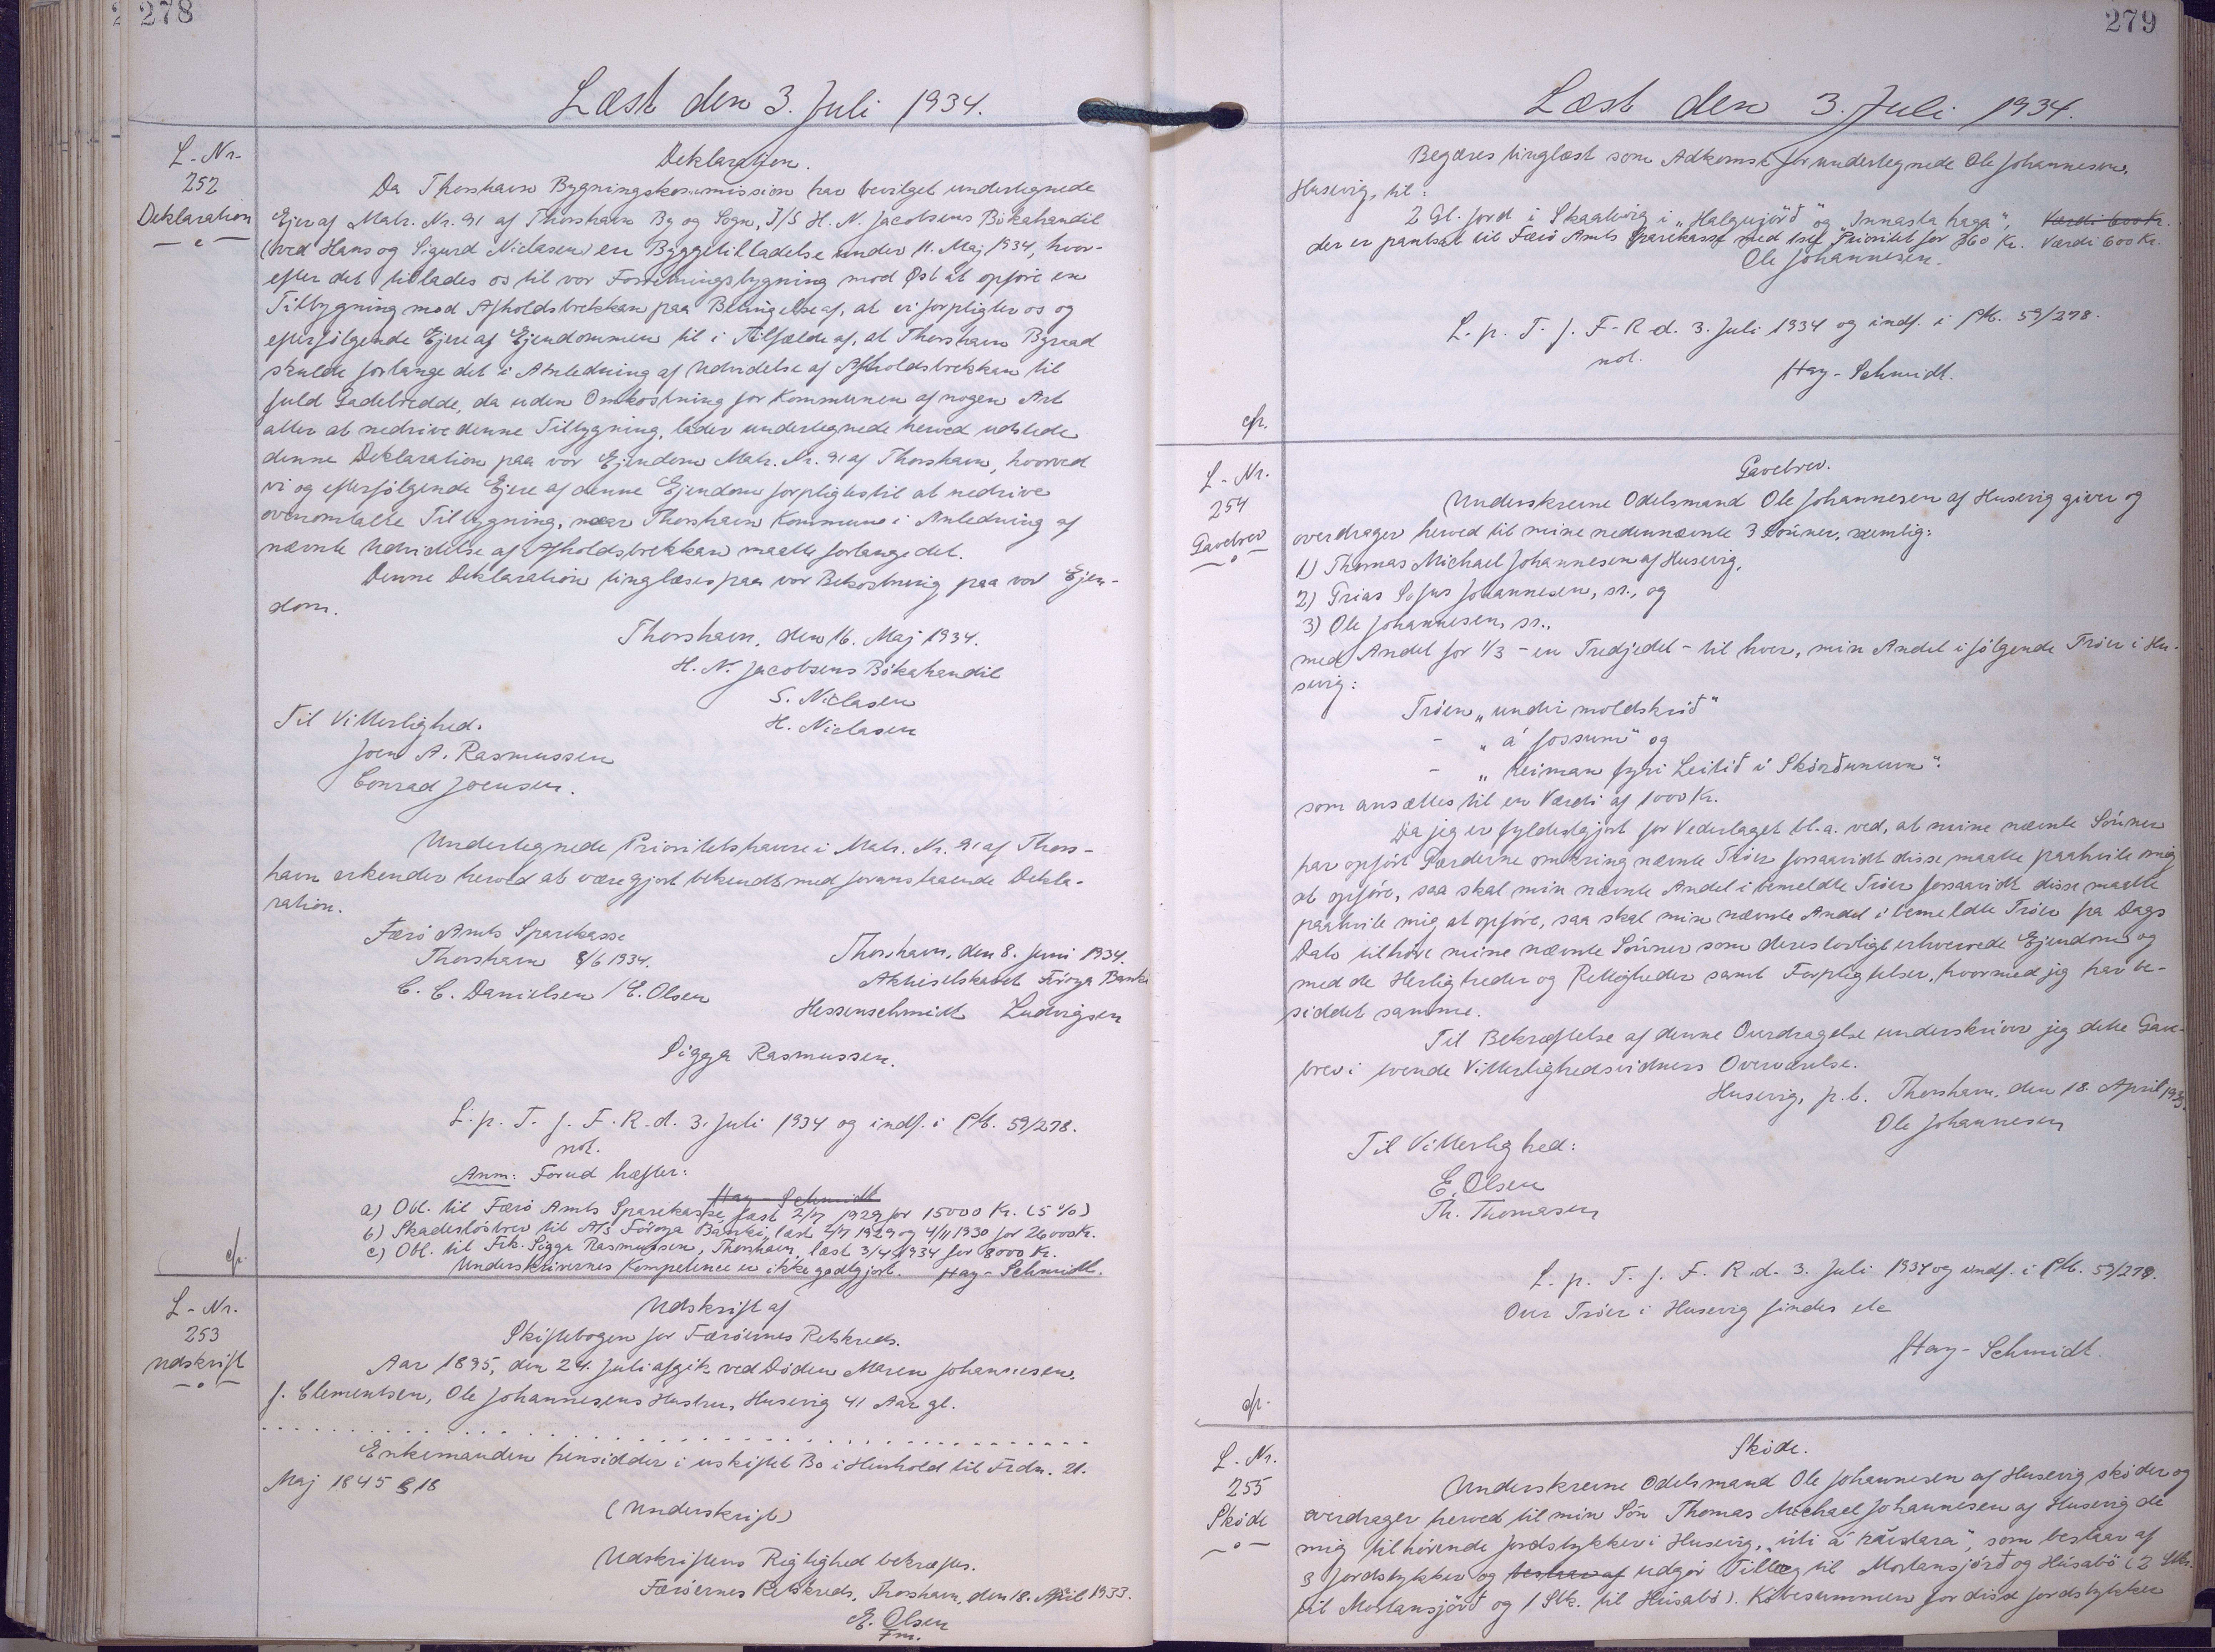 278
Læst den 3. Juli 1934.
L-Nr.
252
Deklaration
Deklaration.
Da Thorshavn Bygningskommission har bevilget undertegnede
Ejer af Matr. Nr. 91 af Thorshavn By og Sogn, I/S H. N. Jacobsens Bókahandil
(ved Hans og Sigurd Niclasen) en Byggetilladelse under 11. Maj 1934, hvor-
efter det tillades os til vor Forretningsbygning mod Øst at opføre en
Tilbygning mod Afholdsbrekkan paa Betingelse af, at vi forpligter os og
efterfølgende Ejere af Ejendommen til i Tilfælde af, at Thorshavn Byraad
skulde forlange det i Anledning af Udvidelse af Afholdsbrekkan til
fuld Gadebredde, da uden Omkostning for Kommunen af nogen Art
atter at nedrive denne Tilbygning, lader undertegnede herved udstede
denne Deklaration paa vor Ejendom Matr. Nr. 91 af Thorshavn, hvorved
vi og efterfølgende Ejere af denne Ejendom forpligtes til at nedrive
ovenomtalte Tilbygning, naar Thorshavn Kommune i Anledning af
nævnte Udvidelse af Afholdsbrekkan maatte forlange det.
Denne Deklaration tinglæses paa vor Bekostning paa vor Ejen-
dom.
Thorshavn, den 16. Maj 1934.
H. N. Jacobsens Bókahandil
S. Niclasen
H. Niclasen
Til Vitterlighed.
Joen A. Rasmussen
Conrad Joensen.
Undertegnede Prioritetshavere i Matr. Nr. 91 af Thors-
havn erkender herved at være gjort bekendt med foranstaaende Dekla-
ration.
Færø Amts Sparekasse
Thorshavn 8/6 1934.
C. C. Danielsen / E. Olsen
Thorshavn, den 8. Juni 1934.
Aktieselskabet Føroya Banki
Hessenschmidt Ludvigsen
Sigga Rasmussen.
L. p. T. f. F. R. d. 3. Juli 1934 og indf. i PM. 59/278.
not.
Anm: Forud hæfter:
Hay-Schmidt
a) Obl. til Færø Amts Sparekasse læst 2/7 1929 for 15000 Kr. (5%)
b) Skadesløsbrev til A/S Føroya Banki, læst 2/7 1929 og 4/11 1930 for 26000 Kr.
c) Obl. til Frk. Sigga Rasmussen, Thorshavn, læst 3/4 1934 for 8000 Kr.
Underskrivernes Kompetence er ikke godtgjort. Hay-Schmidt.
cfr.
L-Nr.
253
Udskrift
Udskrift af
Skiftebogen for Færøernes Retskreds.
Aar 1895, den 24. Juli afgik ved Døden Maren Johannesen,
f. Clementsen, Ole Johannesens Hustru, Husevig 41 Aar gl.
Enkemanden hensidder i uskiftet Bo i Henhold til Frdn. 21.
Maj 1845 § 18
(Underskrift)
Udskriftens Rigtighed bekræftes.
Færøernes Retskreds, Thorshavn, den 18. April 1933.
E. Olsen
Fm.
279
Læst den 3. Juli 1934.
Begæres tinglæst som Adkomst for undertegnede Ole Johannesen,
Husevig, til:
2 Gl. Jord i Skaalevig i „Halgujørð" og „Innasta haga", Værdi 600 Kr.
der er pantsat til Færø Amts Sparekasse med 1ste Prioritet for 360 Kr. Værdi 600 Kr.
Ole Johannesen.
L. p. T. f. F-R d. 3. Juli 1934 og indf. i PM. 59/278.
not.
Hay-Schmidt.
cfr.
L-Nr.
254
Gavebrev
Gavebrev.
Underskrevne Odelsmand Ole Johannesen af Husevig giver og
overdrager herved til mine nedennævnte 3 Sønner, nemlig:
1) Thomas Michael Johannesen af Husevig,
2) Trias Sofus Johannesen, sr., og
3) Ole Johannesen, sr.,
med Andel for 1/3 - en Tredjedel - til hver, min Andel i følgende Trøer i Hu-
sevig:
Trøen „undir moldskrið"
- „á fossum" og
- „heiman fyri Leitið i Skørðunum".
som ansættes til en Værdi af 1000 Kr.
Da jeg er fyldestgjort for Vederlaget bl.a. ved, at mine nævnte Sønner
har opført Gærderne omkring nævnte Trøer forsaavidt disse maatte paahvile mig
at opføre, saa skal min nævnte Andel i bemeldte Trøer forsaavidt disse maatte
paahvile mig at opføre, saa skal min nævnte Andel i bemeldte Trøer fra Dags
Dato tilhøre mine nævnte Sønner som deres lovligt erhvervede Ejendom og
med de Herligheder og Rettigheder samt Forpligtelser, hvormed jeg har be-
siddet samme.
Til Bekræftelse af denne Overdragelse underskriver jeg dette Gave-
brev i tvende Vitterlighedsvidners Overværelse.
Husevig, p.t. Thorshavn, den 18. April 1933.
Ole Johannesen
Til Vitterlighed:
E. Olsen
Th. Thomasen
L. p. T. f. F. R. d. 3. Juli 1934 og indf. i PM. 59/278.
Over Trøer i Husevig findes ete
Hay-Schmidt.
cfr.
L-Nr.
255
Skøde
Skøde.
Underskrevne Odelsmand Ole Johannesen af Husevig skøder og
overdrager herved til min Søn Thomas Michael Johannesen af Husevig de
mig tilhørende Jordstykker i Husevig, „úti á", som bestaar af
3 Jordstykker og bestaar af udgør Tillæg til Mortansjørð og Húsabø (2 Stk.
til Mortansjørð og 1 Stk. til Húsabø). Købesummen for disse Jordstykker